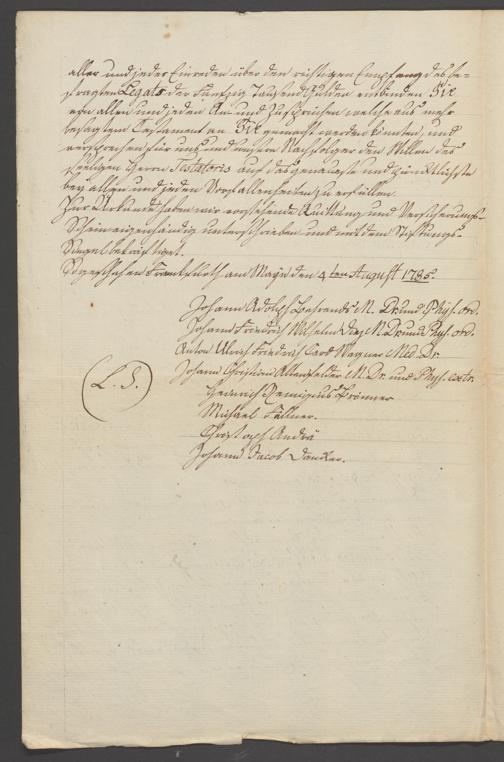 aller und jeder Einreden über den richtigen Empfang des be-
fragten Legats der Fünfzig Tausend Gulden entbinden Sie
von allen und jeden An- und Zusprüchen welche aus mehr
besagtem Testament an Sie gemacht werden könten, und
versprechen für uns und unsere Nachfolger den Willen des
seeligen Herrn Testatoris auf das genaueste und pünktlichste
bey allen und jeden Vorfallenheiten zu erfüllen.
Zur Urkunde haben wir vorstehende Quittung und Versicherungs-
Schein eigenhändig unterschrieben und mit dem Stiftungs-
Siegel bekräftiget.
So geschehen Frankfurth am Mayn den 4ten August 1785.
Johann Adolph Behrends M. Dr. und Phys. ord.
Johann Friedrich Wilhelm M. Dr. und Phys. ord.
Anton Ulrich Friedrich Carl Wagner Med. Dr.
Johann Christian Altenfelder M. Dr. und Phys. extr.
(L. S.)
Heinrich Remigius Brönner
Michael Fellner.
Christoph Andrä
Johann Jacob Däncker.